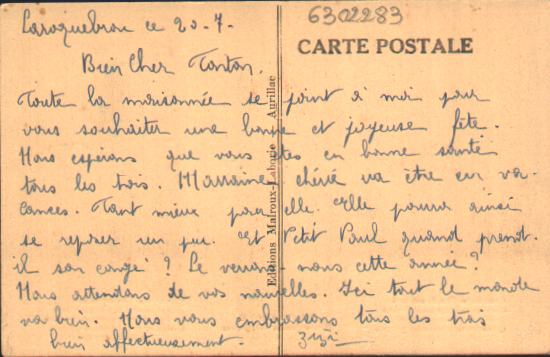 Laroquebrou ce 20-7.
6302283
CARTE POSTALE
Bien Cher Tonton,
Toute la maisonnée se joint à moi pour
vous souhaiter une bonne et joyeuse fête.
Nous espérons que vous êtes en bonne santé
tous les trois. Marraine chérie va être en va-
cances. Tant mieux pour elle. Elle pourra ainsi
se reposer un peu. Et Petit Paul quand prend-
il son congé ? Le verrons-nous cette année ?
Nous attendons de vos nouvelles. Ici tout le monde
va bien. Nous vous embrassons tous les trois
bien affectueusement.
Zizi
Editions Malroux-Laborie Aurillac